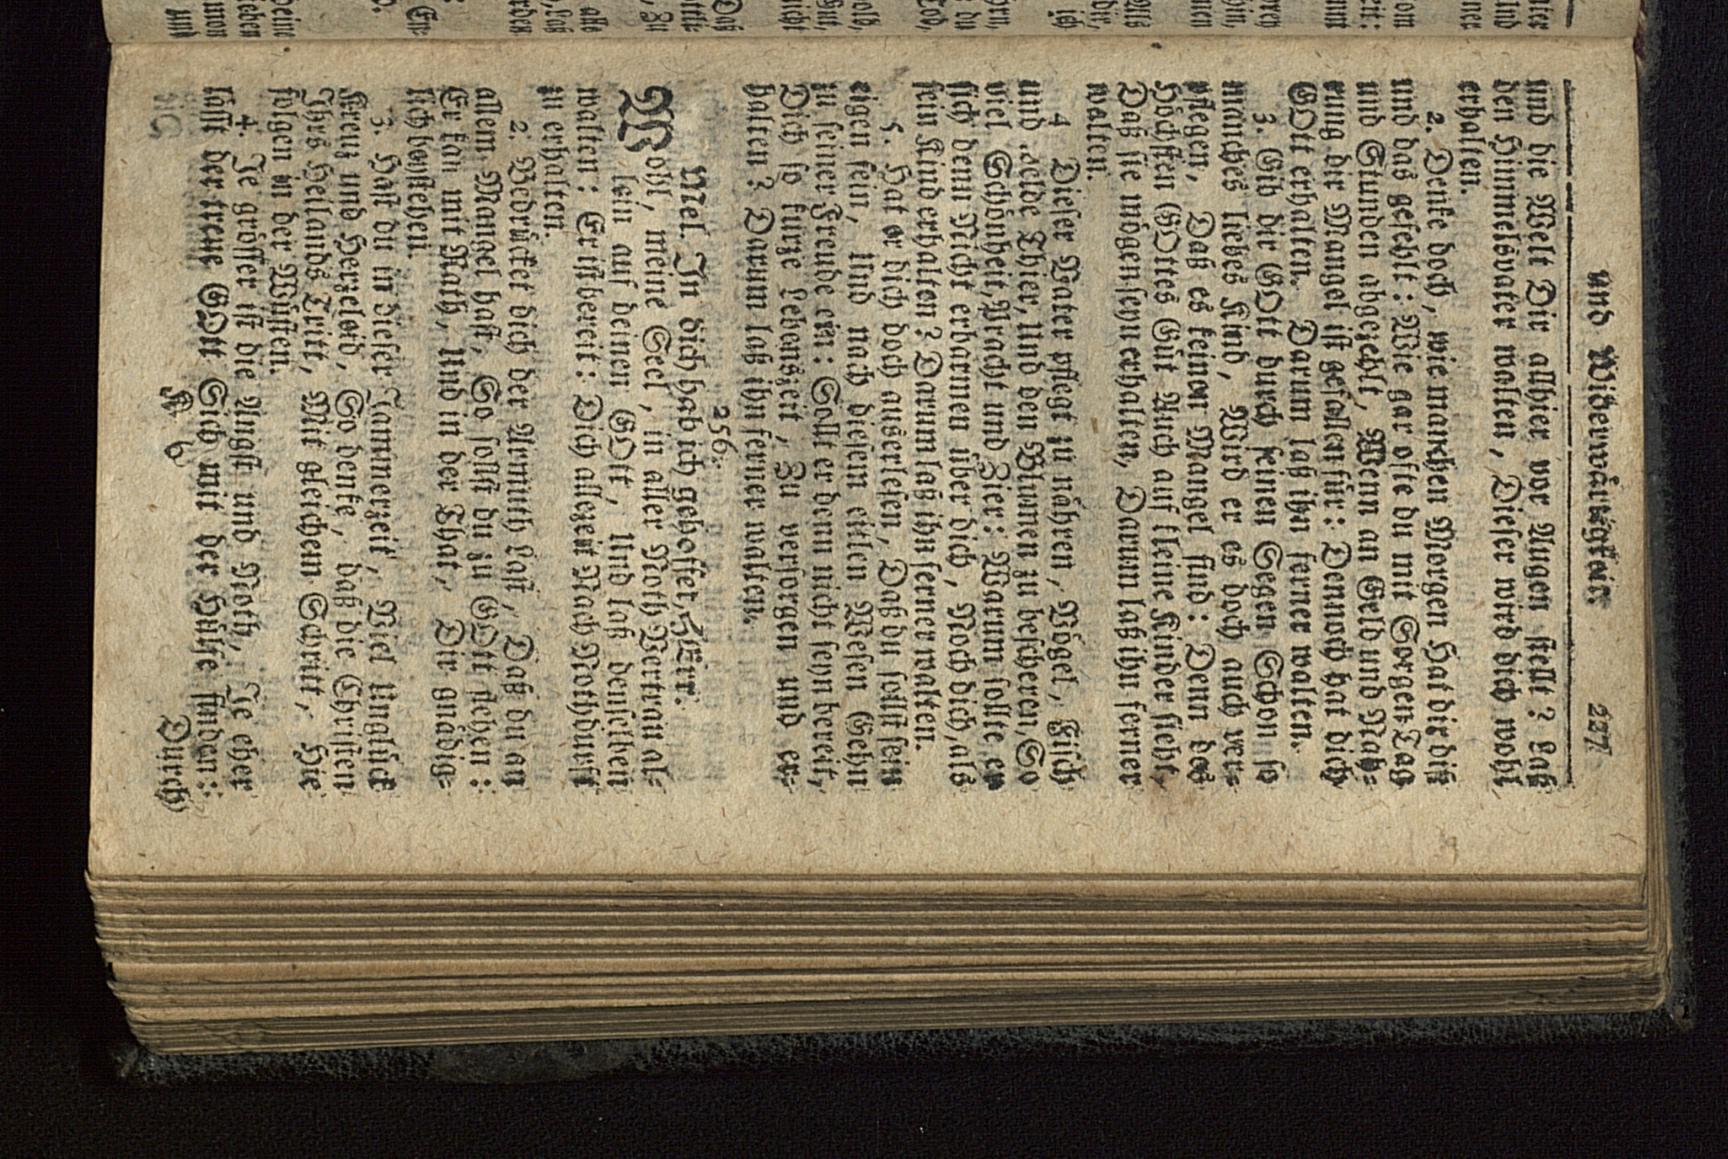 und Widerwärtigkeit. 227
und die Welt Dir allhier vor Augen stellt? Laß
den Himmelsvater walten, Dieser wird dich wohl
erhalten.
2. Denke doch, wie manchen Morgen Hat dir diß
und das gefehlt: Wie gar ofte du mit Sorgen Tag
und Stunden abgezehlt, Wenn an Geld und Nah-
rung dir Mangel ist gefallen für: Dennoch hat dich
GOtt erhalten. Darum laß ihn ferner walten.
3. Gib dir GOtt durch seinen Segen Schon so
manches liebes Kind, Wird er es doch auch ver-
pflegen, Daß es keiner Mangel find: Denn des
Höchsten GOttes Güt Auch auf kleine Kinder sieht,
Daß sie mögen seyn erhalten, Darum laß ihn ferner
walten.
4 Dieser Vater pflegt zu nähren, Vögel, Fisch
und wilde Thier, Und den Blumen zu bescheren, So
viel Schönheit, Pracht und Zier: Warum sollte er
sich denn Nicht erbarmen über dich, Noch dich, als
sein Kind erhalten? Darum laß ihn ferner walten.
5. Hat er dich doch auserlesen, Daß du sollst sein
eigen sein, Und nach diesem eitlen Wesen Gehn
zu seiner Freude ein: Sollt er denn nicht seyn bereit,
Dich so kurze Lebenszeit, Zu versorgen und er-
halten? Darum laß ihn ferner walten.
256.
Mel. In dich hab ich gehoffet, HErr.
Wohl, meine Seel, in aller Noth Vertrau al-
lein auf deinen GOtt, Und laß denselben
walten: Er ist bereit: Dich allezeit Nach Nothdurft
zu erhalten.
2. Bedrücket dich der Armuth Last, Daß du an
allem Mangel hast, So sollst du zu GOtt stehen:
Er kan mit Rath, Und in der That, Dir gnädig-
lich beystehen.
3. Hast du in dieser Jammerzeit, Viel Unglück
Creuz und Herzeleid, So denke, daß die Christen
Ihrs Heilands Tritt, Mit gleichen Schritt, Hie
folgen in der Wüsten.
4. Je grösser ist die Angst und Noth, Je eher
läßt der treue GOtt Sich mit der Hülfe finden:
K 6 Durch